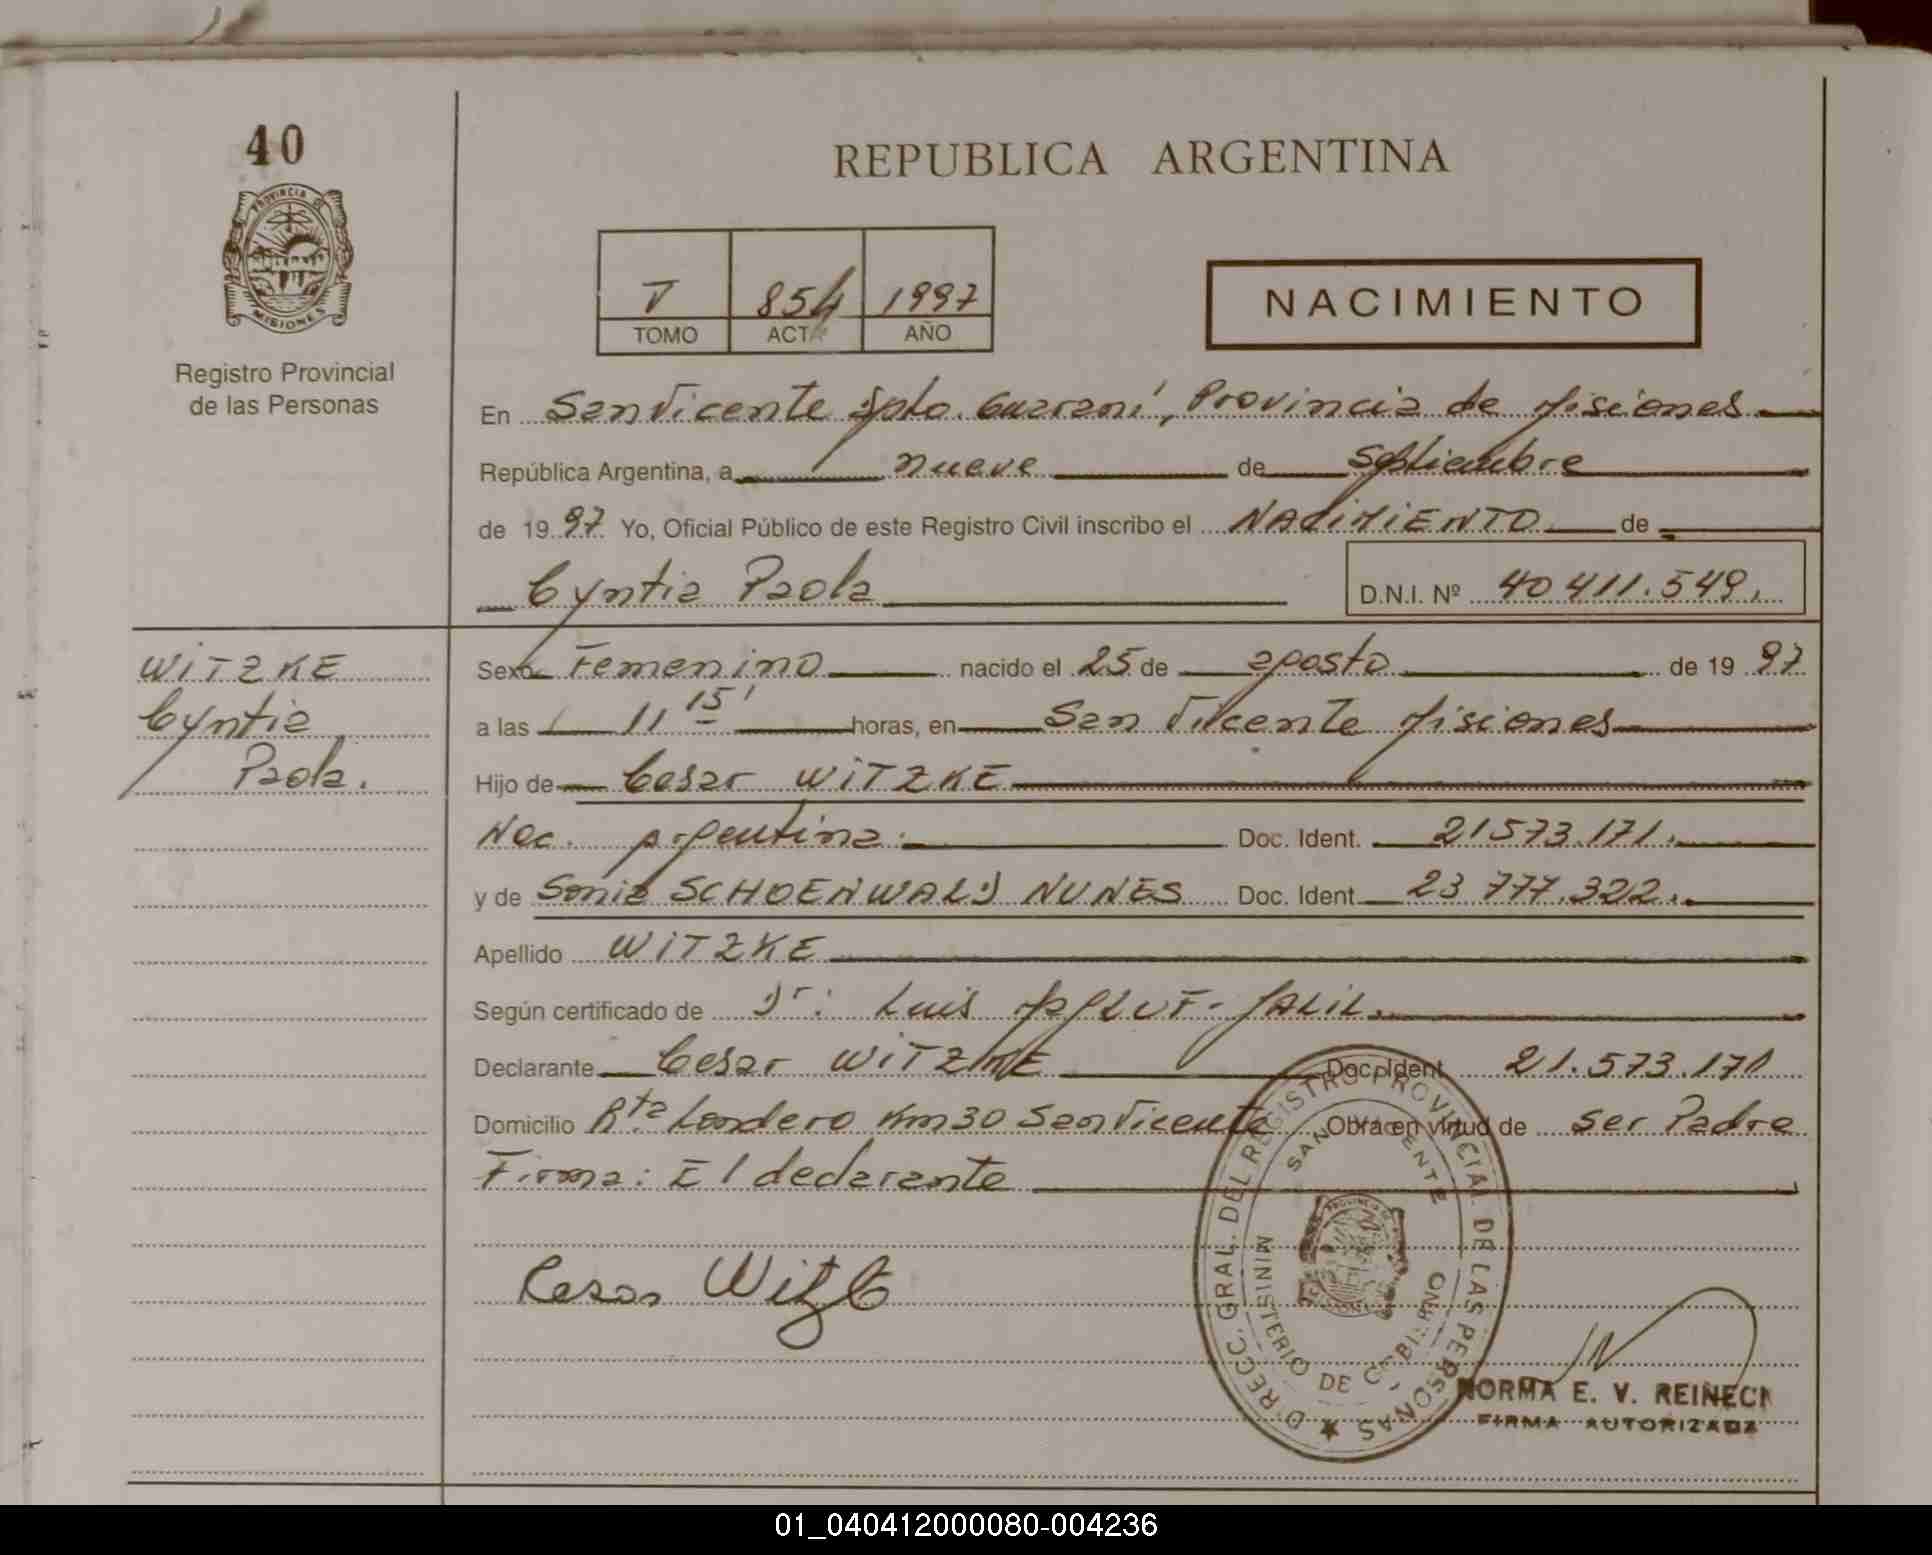 40
PROVINCIA DE
MISIONES
Registro Provincial
de las Personas
REPUBLICA ARGENTINA
T 854 1997
TOMO ACTA AÑO
NACIMIENTO
En San Vicente Dpto. Guaraní, Provincia de Misiones
República Argentina, a nueve de Septiembre
de 1997 Yo, Oficial Público de este Registro Civil inscribo el NACIMIENTO de
Cyntia Paola
D.N.I. Nº 40 411.549.
WITZKE
Cyntia
Paola.
Sexo Femenino nacido el 25 de agosto de 1997
a las 11 15' horas, en San Vicente Misiones
Hijo de Cesar WITZKE
Nac. Argentina. Doc. Ident. 21573.171.
y de Sonia SCHOENWALD NUNES Doc. Ident. 23 777.322.
Apellido WITZKE
Según certificado de Dr: Luis JALIL.
Declarante Cesar WITZKE Doc. Ident. 21.573.171
Domicilio Rta Londero Km30 San Vicente Obra en virtud de ser Padre
Firma: El declarante
Cesar Witzke
DIRECC. GRAL. DEL REGISTRO PROVINCIAL DE LAS PERSONAS
SAN VICENTE
MINISTERIO DE GOBIERNO
NORMA E. V. REINECK
FIRMA AUTORIZADA
01_040412000080-004236